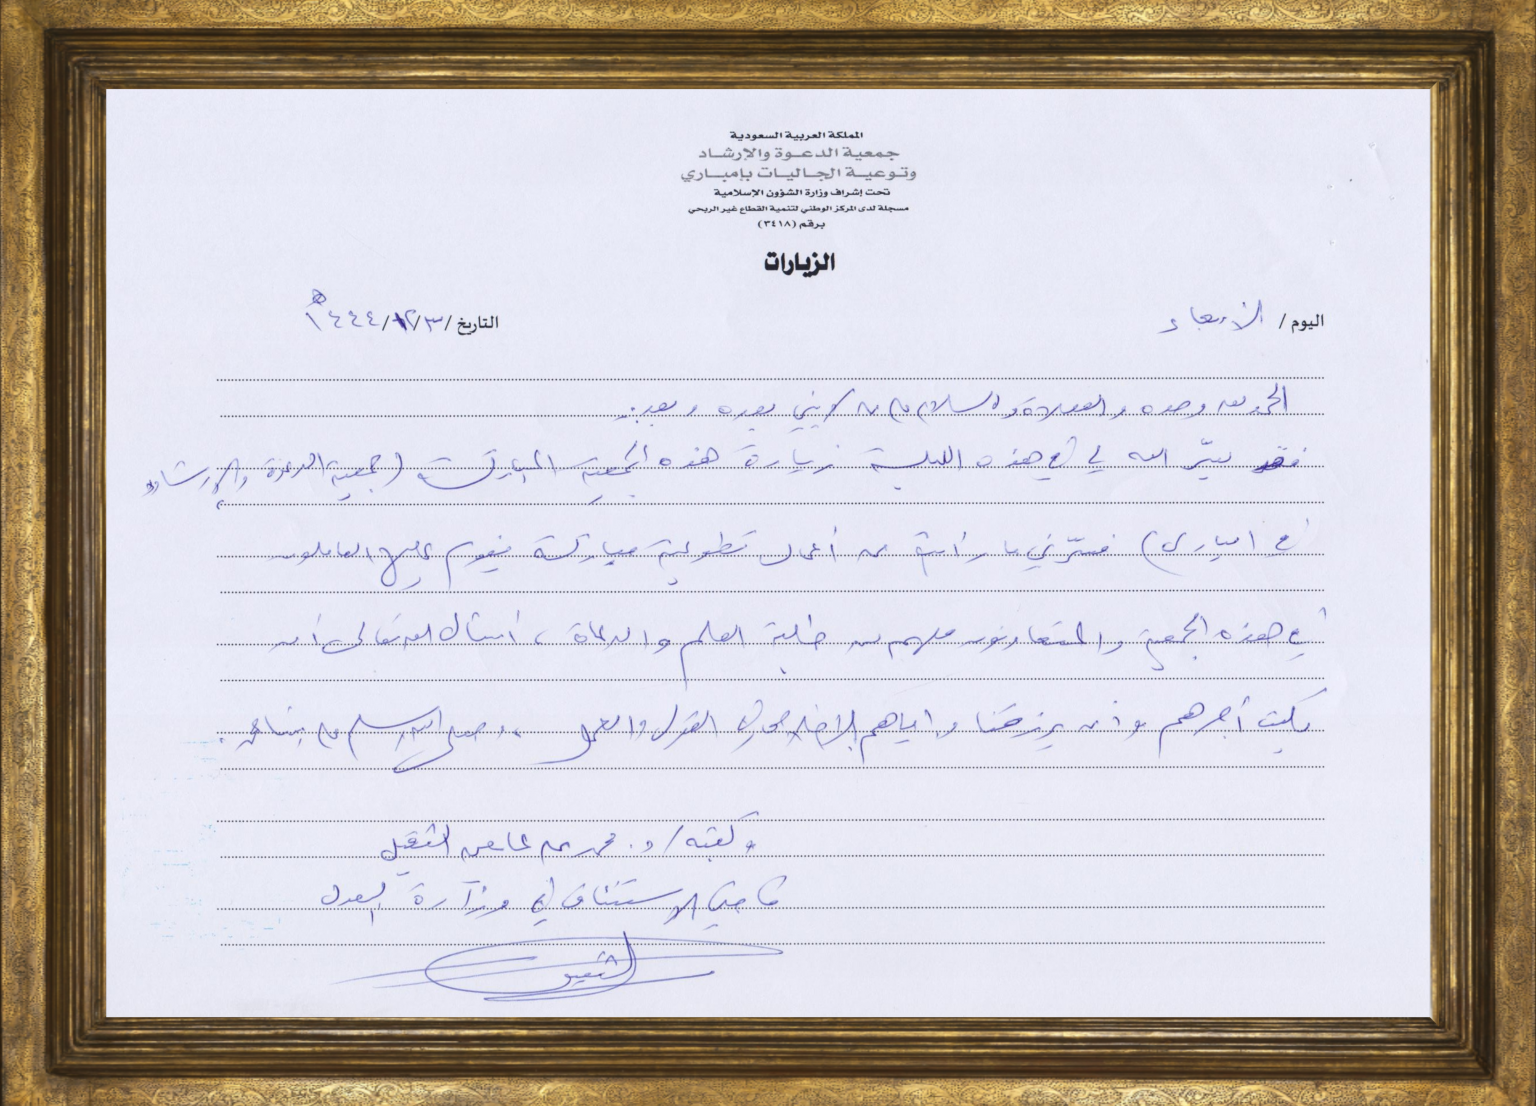 المملكة العربية السعودية
جمعية الدعوة والإرشاد
وتوعية الجاليات بإمباري
تحت إشراف وزارة الشؤون الإسلامية
مسجلة لدى المركز الوطني لتنمية القطاع غير الربحي
برقم (٣٤١٨)
الزيارات
اليوم / الأربعاء
التاريخ / ٣/١٢/١٤٤٤هـ
الحمد لله وحده والصلاة والسلام على من لا نبي بعده وبعد:
فقد يسّر الله لي في هذه الليلة زيارة هذه الجمعية المباركة (جمعية الدعوة والإرشاد
في امباري) فسرّني ما رأيته من أعمال تطوعية مباركة يقوم عليها العاملون
في هذه الجمعية والمتعاونون معهم من طلبة العلم والدعاة، أسأل الله تعالى أن
يكتب أجرهم وأن يرزقنا وإياهم الإخلاص في القول والعمل، وصلى الله وسلم على نبينا محمد.
وكتبه / د. محمد بن عائض الثقيل
قاضي الاستئناف في وزارة العدل